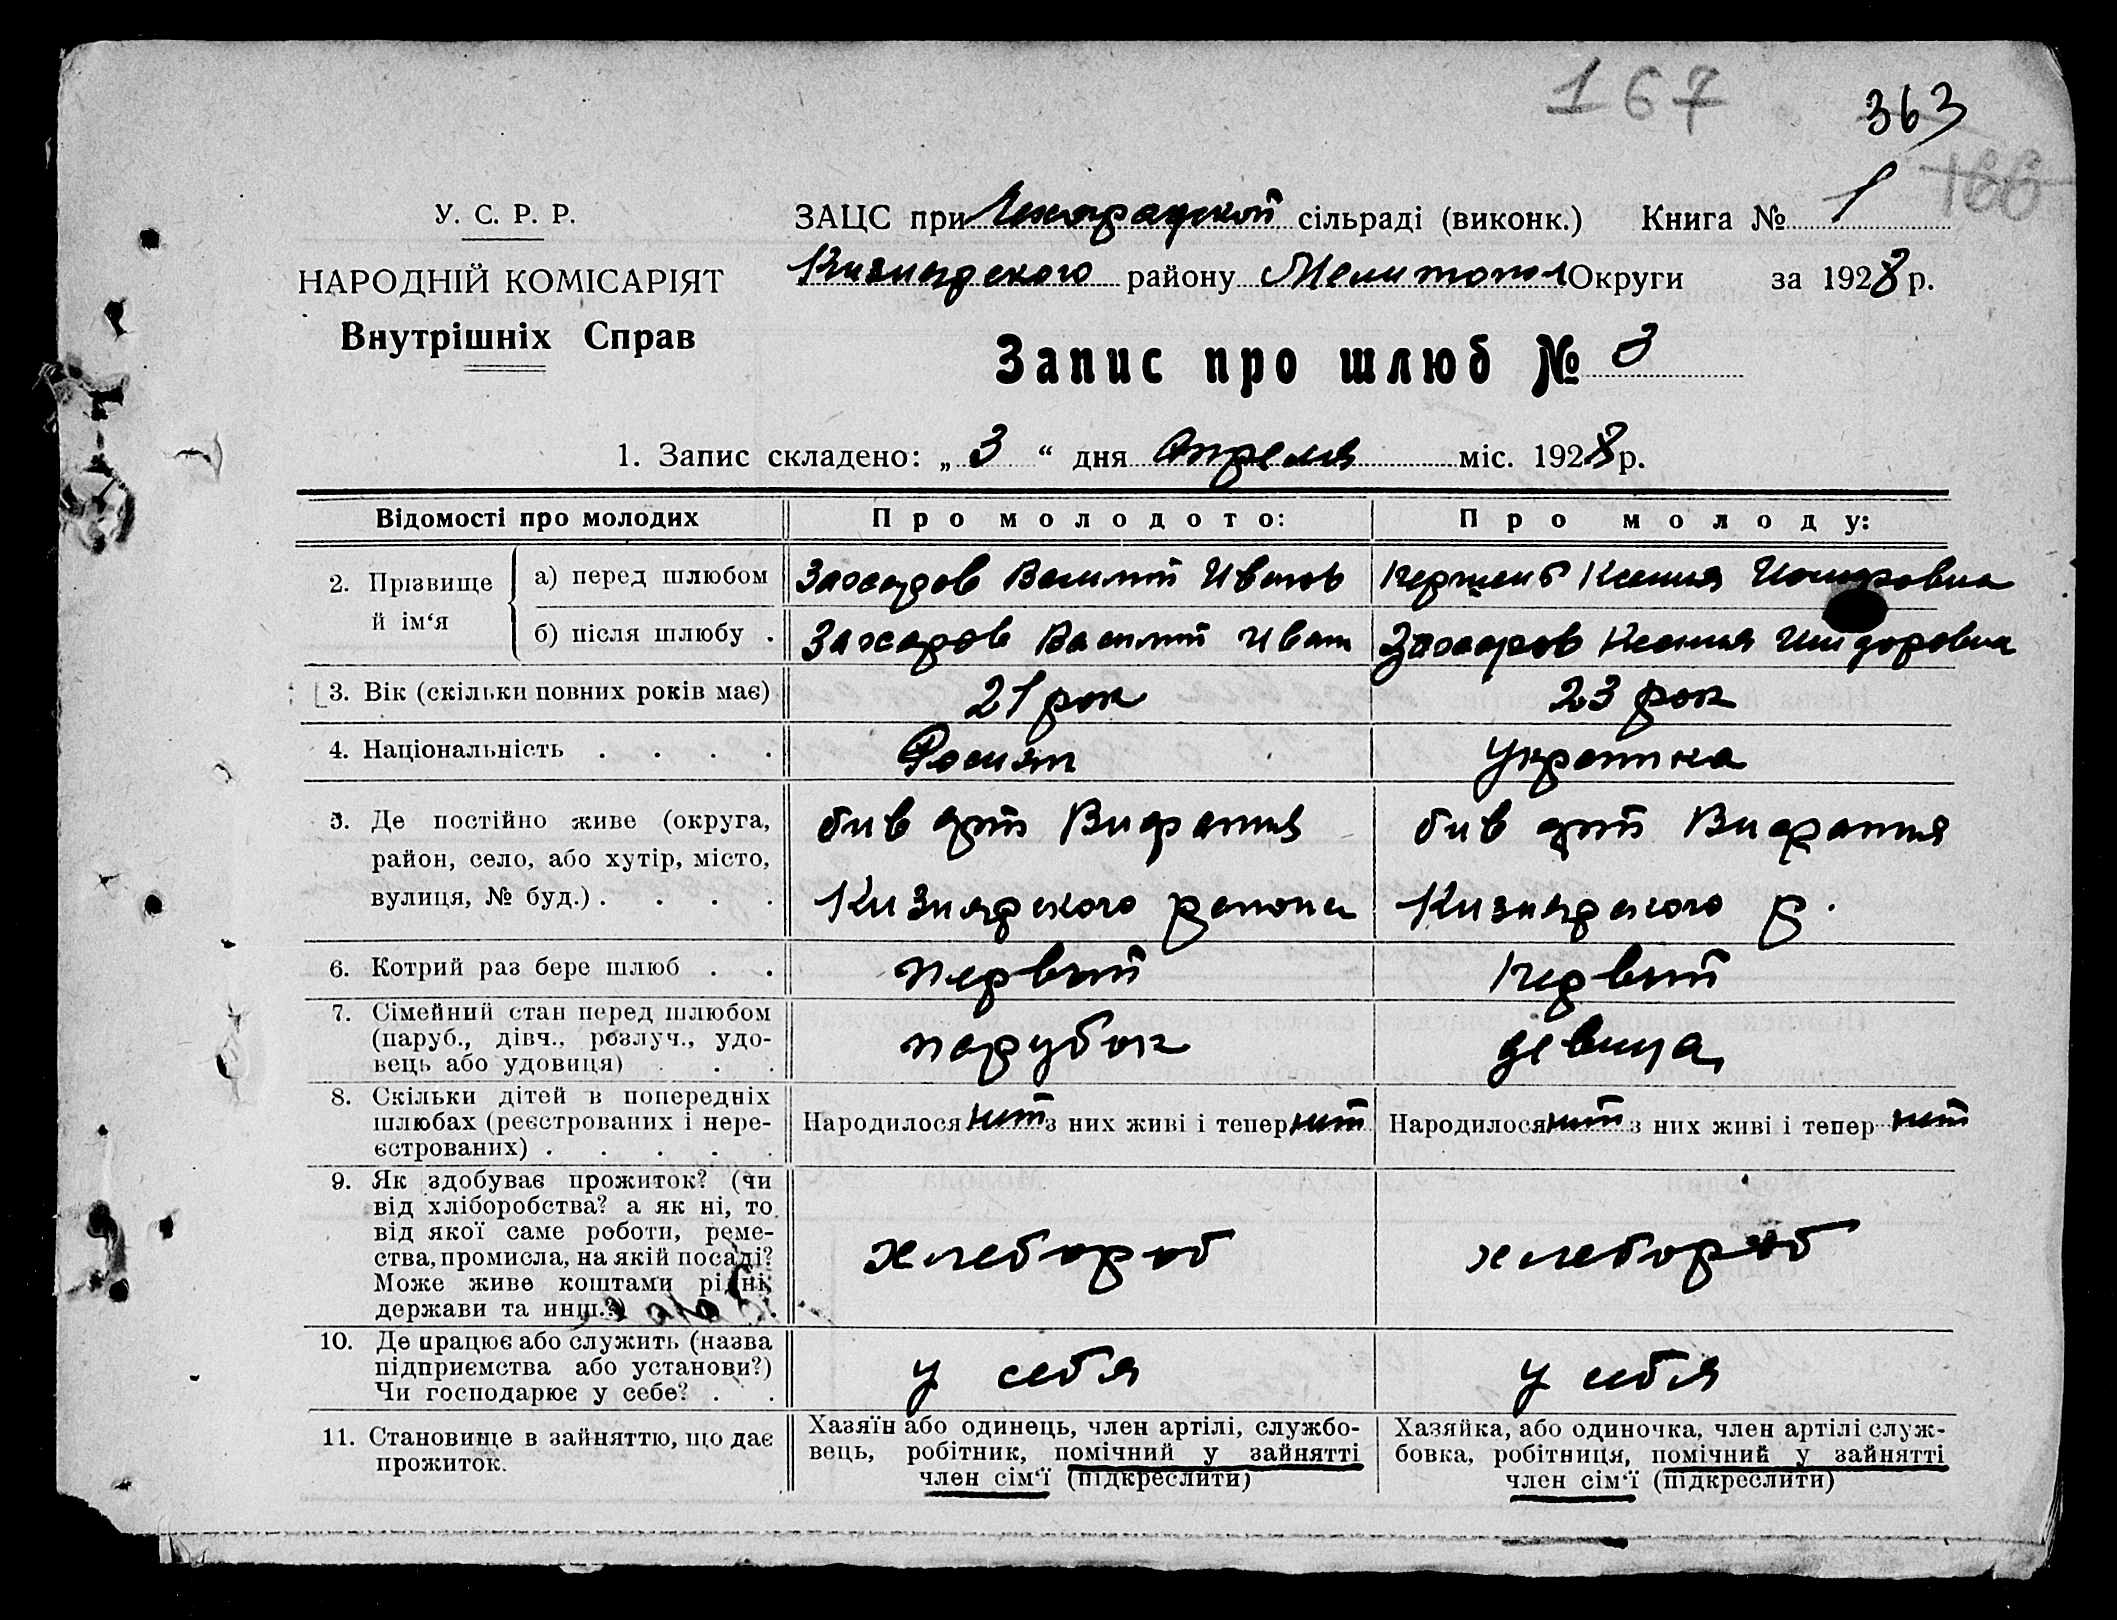 167
363
166
У. С. Р. Р.
НАРОДНІЙ КОМІСАРІЯТ
Внутрішніх Справ
ЗАЦС при Чехоградской сільраді (виконк.) Книга № 1
Кизиярского району Мелитопол Округи за 1928 р.
Запис про шлюб № 3
1. Запис складено: „ 3 “ дня Апреля міс. 1928 р.
Відомості про молодих
Про молодого:
Про молоду:
2. Прізвище й ім‘я
а) перед шлюбом
Захаров Василий Иванов
Ксения
б) після шлюбу .
Захаров Василий Иван
Захаров Ксения Исидоровна
3. Вік (скільки повних років має)
21 рок
23 рок
4. Національність . . . .
Росиян
Украинка
5. Де постійно живе (округа,
район, село, або хутір, місто,
вулиця, № буд.) . . . .
Кизиярского района
Кизиярского р.
6. Котрий раз бере шлюб . .
первый
первый
7. Сімейний стан перед шлюбом
(паруб., дівч., розлуч., удо-
вець або удовиця) . . .
парубок
девица
8. Скільки дітей в попередніх
шлюбах (реєстрованих і нере-
єстрованих) . . . . .
Народилося нит з них живі і тепер нит
Народилося нит з них живі і тепер нит
9. Як здобуває прожиток? (чи
від хліборобства? а як ні, то
від якої саме роботи, реме-
ства, промисла, на якій посаді?
Може живе коштами рідні,
держави та инш.?)
хлебороб
хлебороб
10. Де працює або служить (назва
підприємства або установи?)
Чи господарює у себе? . .
у себя
у себя
11. Становище в зайняттю, що дає
прожиток.
Хазяїн або одинець, член артілі, службо-
вець, робітник, помічний у зайнятті
член сім‘ї (підкреслити)
Хазяйка, або одиночка, член артілі служ-
бовка, робітниця, помічний у зайнятті
член сім‘ї (підкреслити)